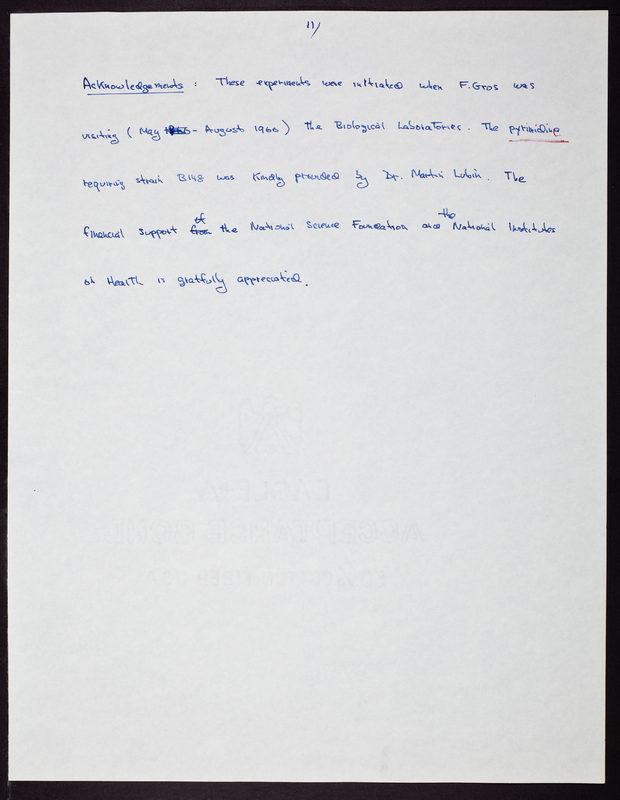 11/
Acknowledgements : These experiments were initiated when F. Gros was
visiting ( May - August 1960 ) the Biological Laboratories. The pyrimidine
requiring strain B148 was kindly provided by Dr. Martin Lubin. The
of the
financial support from the National Science Foundation and National Institutes
of Health is gratfully appreciated.
EAGLE-A
ACCEPTANCE BOND